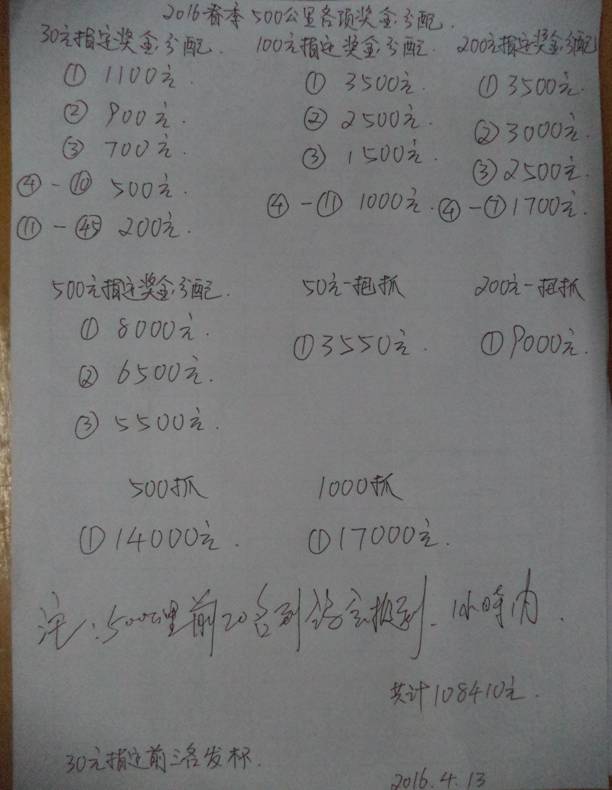 2016春季500公里各项奖金分配.
30元指定奖金分配. 100元指定奖金分配. 200元指定奖金分配
① 1100元. ① 3500元. ① 3500元.
② 900元. ② 2500元. ② 3000元.
③ 700元. ③ 1500元. ③ 2500元.
④-⑩ 500元. ④-⑪ 1000元. ④-⑦ 1700元.
⑪-㊺ 200元.
500元指定奖金分配. 50元一把抓 200元一把抓
① 8000元. ① 3550元. ① 9000元.
② 6500元.
③ 5500元.
500抓 1000抓
① 14000元. ① 17000元.
注:500公里前20名到 报到.1小时内.
共计108410元.
30元指定前三名发杯.
2016.4.13